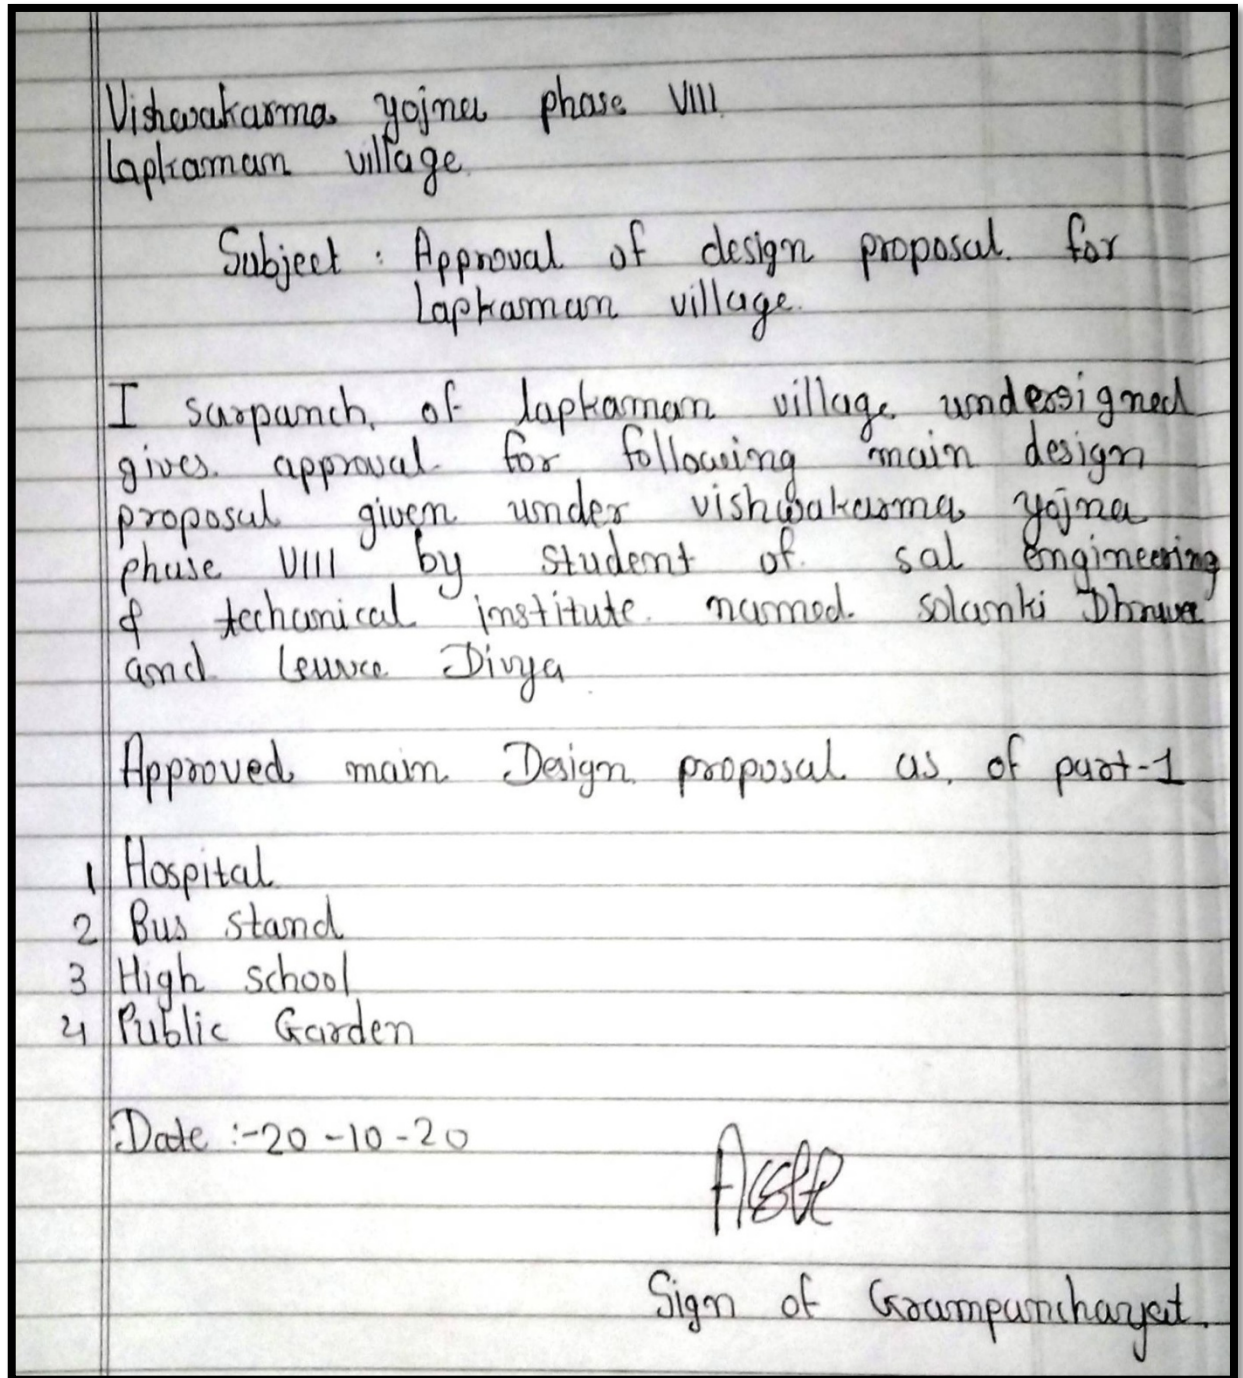 Vishwakarma yojna phase VIII
Lapkaman village
Subject : Approval of design proposal for
Lapkaman village.
I sarpanch of lapkaman village undersigned
gives approval for following main design
proposal given under vishwakarma yojna
phase VIII by student of sal engineering
& techanical institute named solanki Dhruva
and Leuva Divya
Approved main Design proposal as of part-1
1 Hospital
2 Bus stand
3 High school
4 Public Garden
Date :-20-10-20
Sign of Grampanchayat.